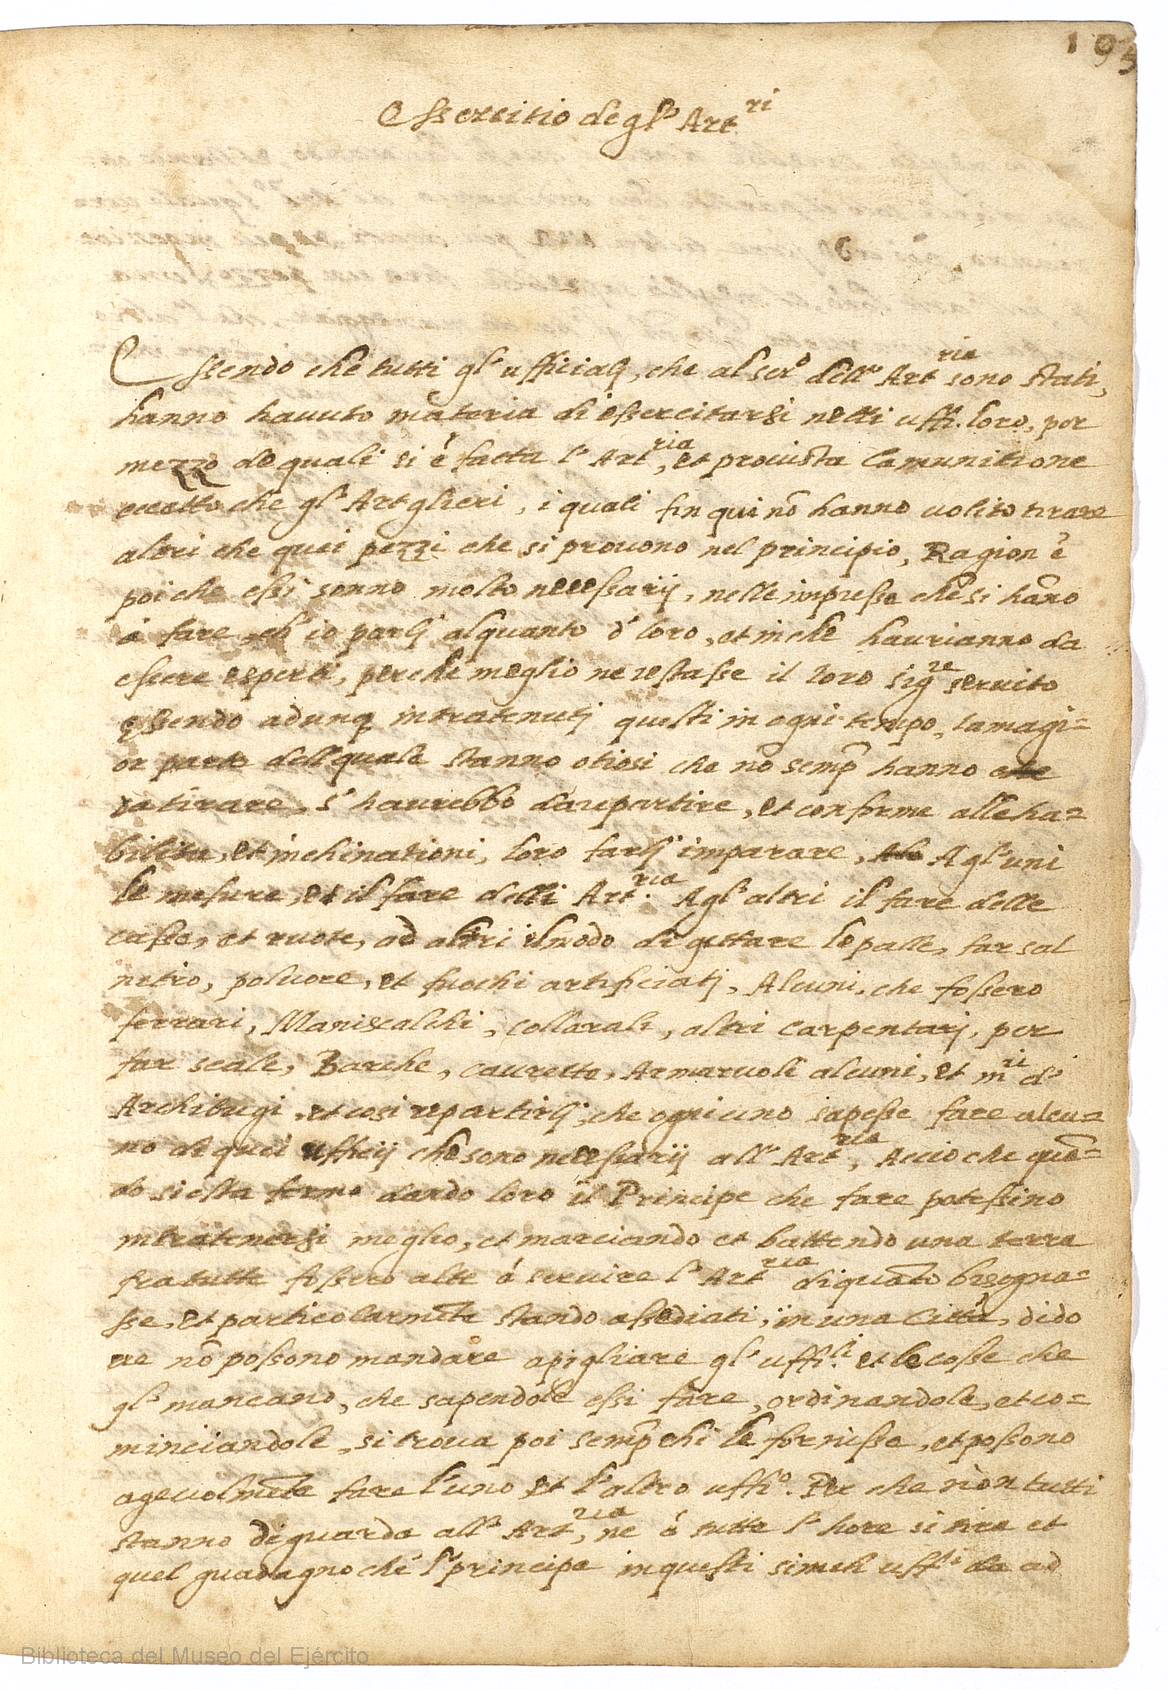 195
Essercitio de gl' Art.ri
Essendo che tutti gl' ufficialj, che al ser.o dell' Art.ria sono stati,
hanno havuto materia di essercitarsi nelli uffi. loro, per
mezzo de quali si é fatta l' Art.ria, et provista la munitione
eccetto che gl' Artiglieri, i quali fin qui nō hanno volito tirare
altri che quei pezzi che si provono nel principio, Ragion' é
poi che essi sonno molto necessarij, nelle impresse che si hāno
á fare, ch' io parlj alquanto d' loro, et in che haurianno da
essere esperti, perche meglio ne restasse il loro sig.re servito
essendo adunq intratenutj questi in ogni tempo, la magi=
or parte dell quale stanno otiosi che nō semp hanno
da tirare, s' haurebbo da repartire, et conforme alle ha=
bilita, et inchinationi, loro farlj imparare, A gl' uni
le mesure, et il fare delli Art.ria. A gl' altri il fare delle
casse, et ruote, ad altri il modo di gettare le palle, far sal
nitro, polvore, et fuochi artificiatj, Alcuni, che fossero
ferrari, Maniscalchi, collarali, altri carpentarj, per
far scale, Barche, caurette, Armaruoli alcuni, et m.ri d'
Archibugi, et cosi repartirlj, che ogni uno sapesse fare alcu=
no di quei ufficij che sono necessarij all' Art.ria, Accio che quā=
do si esta fermo dando loro il Principe che fare potessino
intratenersi meglio, et marciando et battendo una terra
fra tutte fossero alte á servire l' Art.ria di quāto bisogna=
sse, et particolarmēte stando assediati, in una Cittá, di do
ve nō possono mandare a pigliare gl' uffi.li et le cosse che
gl' mancano, che sapendole essi fare, ordinandole, et co=
minciandole, si trova poi semp chi le fornisse, et possono
agevolmēte fare l' uno et l' altro uffi.o. Per che non tutti
stanno de guarda all' Art.ria, ne á tutte l' hore si tira et
quel guadagno che l' principe in questi simeli uffi. da ad
Biblioteca del Museo del Ejército